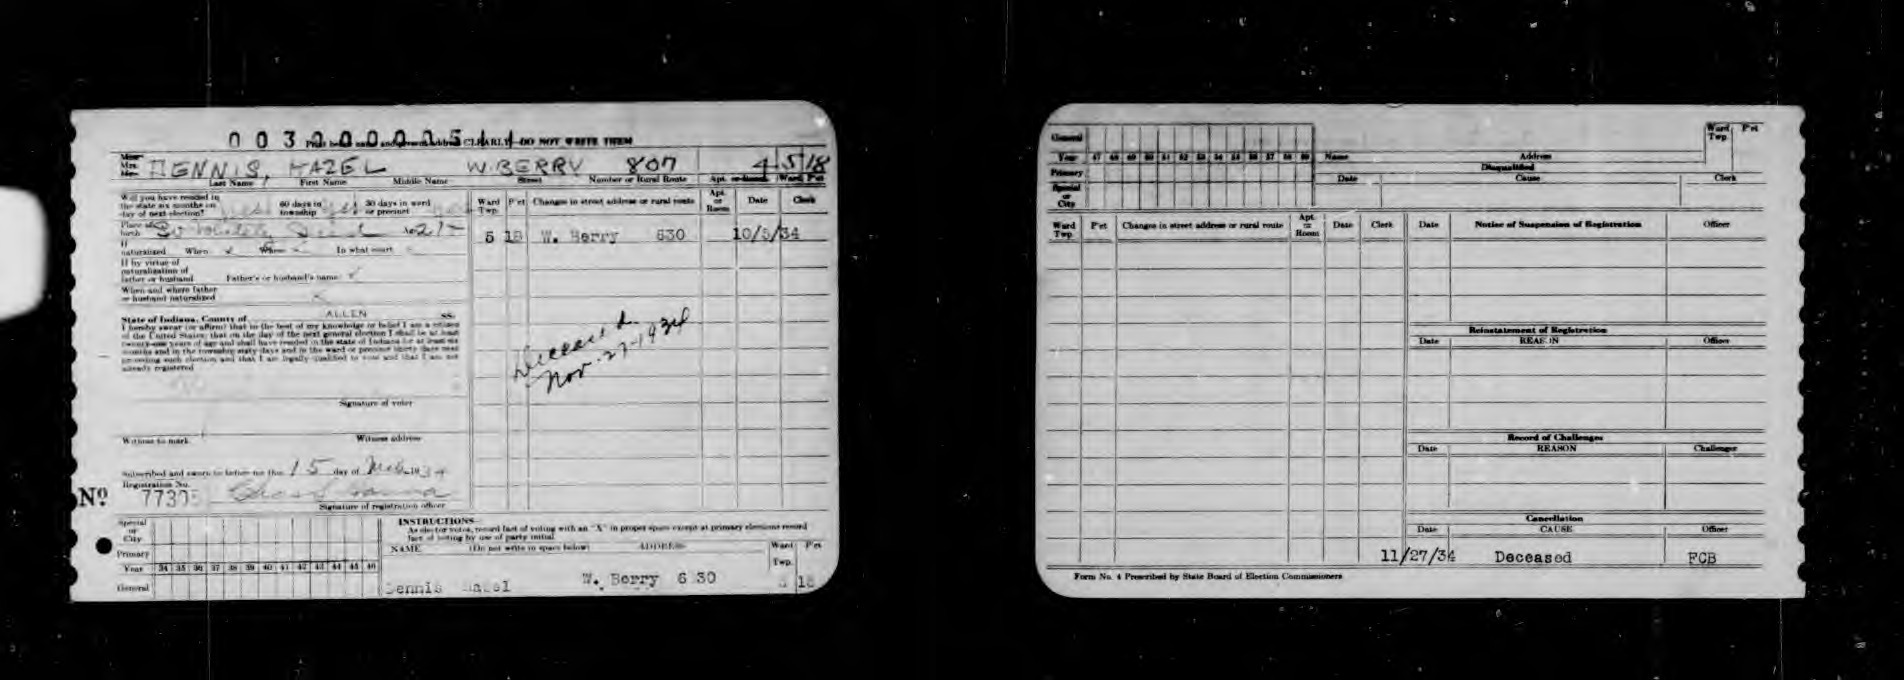 0 0 3 0 0 0 0 0 5 1 1
CLEARLY—DO NOT WRITE THEM
DENNIS, HAZEL W. BERRY 807 4 5 18
Last Name First Name Middle Name Street Number or Rural Route Apt. or Room Ward P'ct
Will you have resided in
the state six months on 60 days in 30 days in ward
day of next election? Yes township Yes or precinct
Place of
birth
If
naturalized When Where In what court
If by virtue of
naturalization of
father or husband Father's or husband's name
When and where father
or husband naturalized
State of Indiana, County of ALLEN ss.
I hereby swear (or affirm) that to the best of my knowledge or belief I am a citizen
of the United States; that on the day of the next general election I shall be at least
twenty-one years of age and shall have resided in the state of Indiana for at least six
months and in the township sixty days and in the ward or precinct thirty days next
preceding such election and that I am legally qualified to vote and that I am not
already registered
Signature of voter
Witness to mark Witness address
Subscribed and sworn to before me this 15 day of 1934
Registration No.
No 77305
Signature of registration officer
Ward Twp. P'ct Changes in street address or rural route Apt. or Room Date Clerk
5 18 W. Berry 630 10/5/34
Deceased
Nov. 27-1934
Special
or
City
Primary
Year 34 35 36 37 38 39 40 41 42 43 44 45 46
General
INSTRUCTIONS—
As elector votes, record fact of voting with an "X" in proper space except at primary elections record
fact of voting by use of party initial
NAME (Do not write in space below) ADDRESS Ward Twp. P'ct
Dennis Hazel W. Berry 630 5 18
General
Year 47 48 49 50 51 52 53 54 55 56 57 58 59 Name Address Ward Twp. P'ct
Primary Disqualified
Special Date Cause Clerk
or
City
Ward Twp. P'ct Changes in street address or rural route Apt. or Room Date Clerk Date Notice of Suspension of Registration Officer
Reinstatement of Registration
Date REASON Officer
Record of Challenges
Date REASON Challenger
Cancellation
Date CAUSE Officer
11/27/34 Deceased FCB
Form No. 4 Prescribed by State Board of Election Commissioners